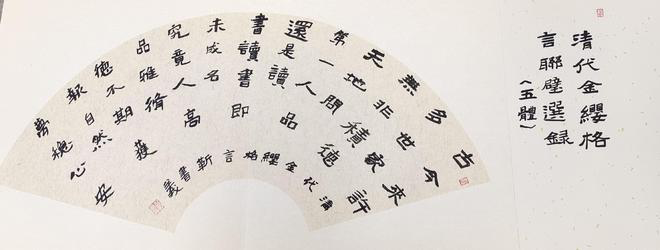 清代金纓格
言聯璧選録
（五體）
古今來許
多世家
無非積德
天地間
第一人品
還是讀
書讀書即
未成名
究竟人高
品雅脩
德不期獲
報自然
夢穩心安
清代金纓格言靳書義